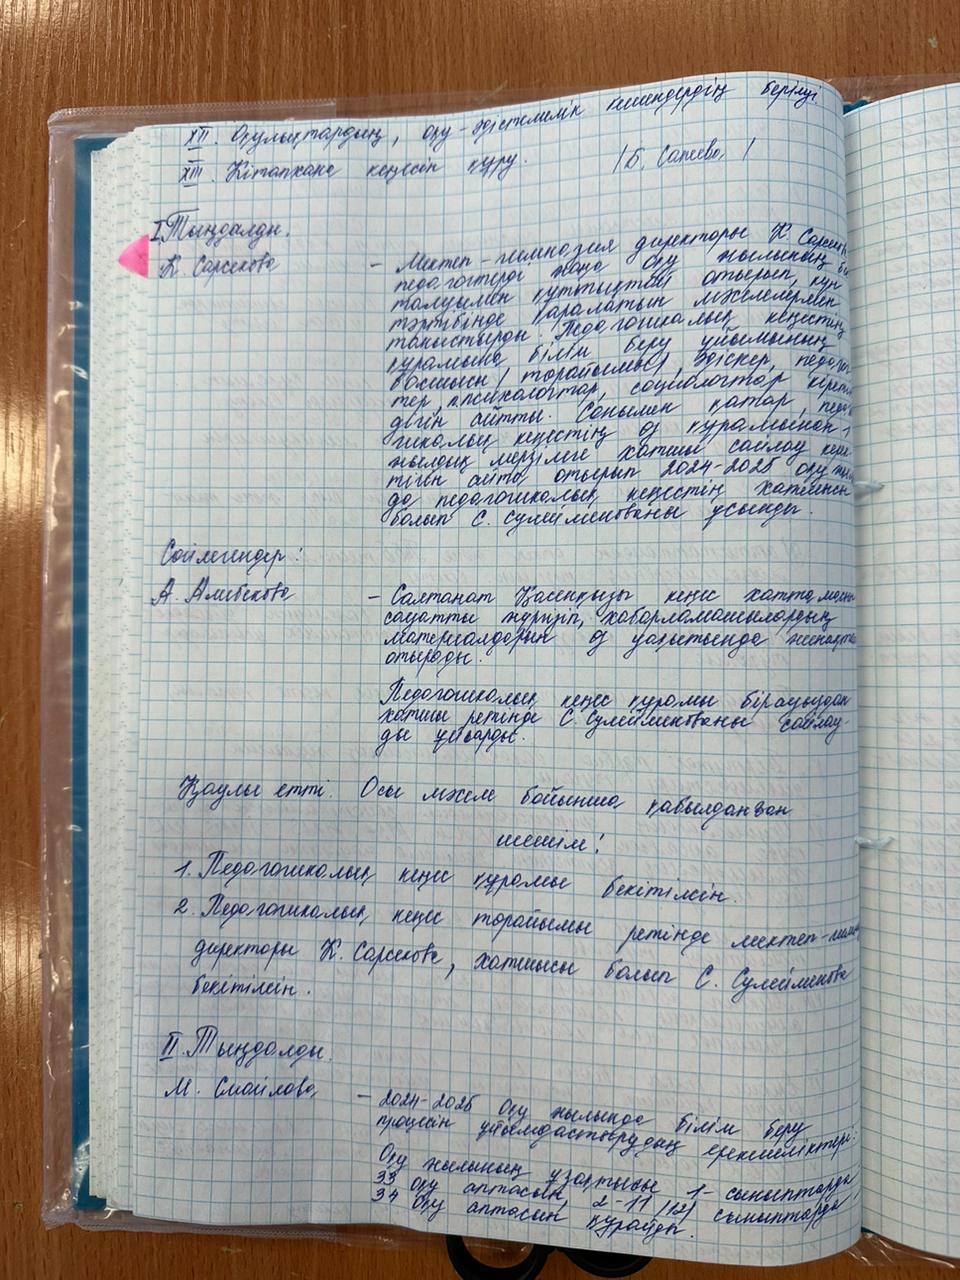 XII. Оқулықтардың, оқу-әдістемелік кешендердің берілуі
XIII. Кітапхана кеңесін құру. /Б. Сапеева/
I Тыңдалды.
К. Сарсекова – Мектеп-гимназия директоры К. Сарсекова
педагогтерді жаңа оқу жылының бас
талуымен құттықтай отырып, күн
тәртібінде қаралатын мәселелермен
таныстырды. Педагогикалық кеңестің
құрамына білім беру ұйымының
басшысы / төрайымы/, әдіскер, педагог
тер, психологтар, социологтар кіреті
дігін айтты. Сонымен қатар, педаго
гикалық кеңестің өз құрамынан 1
жылдық мерзімге хатшы сайлау керек
тігін айта отырып 2024-2025 оқу жылын
да педагогикалық кеңестің хатшысы
болып С. Сулейменованы ұсынды.
Сөйлегендер:
А. Алибекова – Салтанат Қасенқызы кеңес хаттамасын
сауатты жүргізіп, хабарламашылардың
материалдарын өз уақытында жинақтап
отырады.
Педагогикалық кеңес құрамы бірауыздан
хатшы ретінде С. Сулейменованы сайлау-
ды ұйғарды.
Қаулы етті. Осы мәселе бойынша қабылданған
шешім:
1. Педагогикалық кеңес құрамы бекітілсін.
2. Педагогикалық кеңес төрайымы ретінде мектеп-гимназия
директоры К. Сарсекова, хатшысы болып С. Сулейменова
бекітілсін.
II. Тыңдалды
М. Смайлова – 2024-2025 оқу жылында білім беру
процесін ұйымдастырудың ерекшеліктері:
Оқу жылының ұзақтығы 1-сыныптарда
33 оқу аптасын, 2-11 /12/ сыныптарда
34 оқу аптасын құрайды.